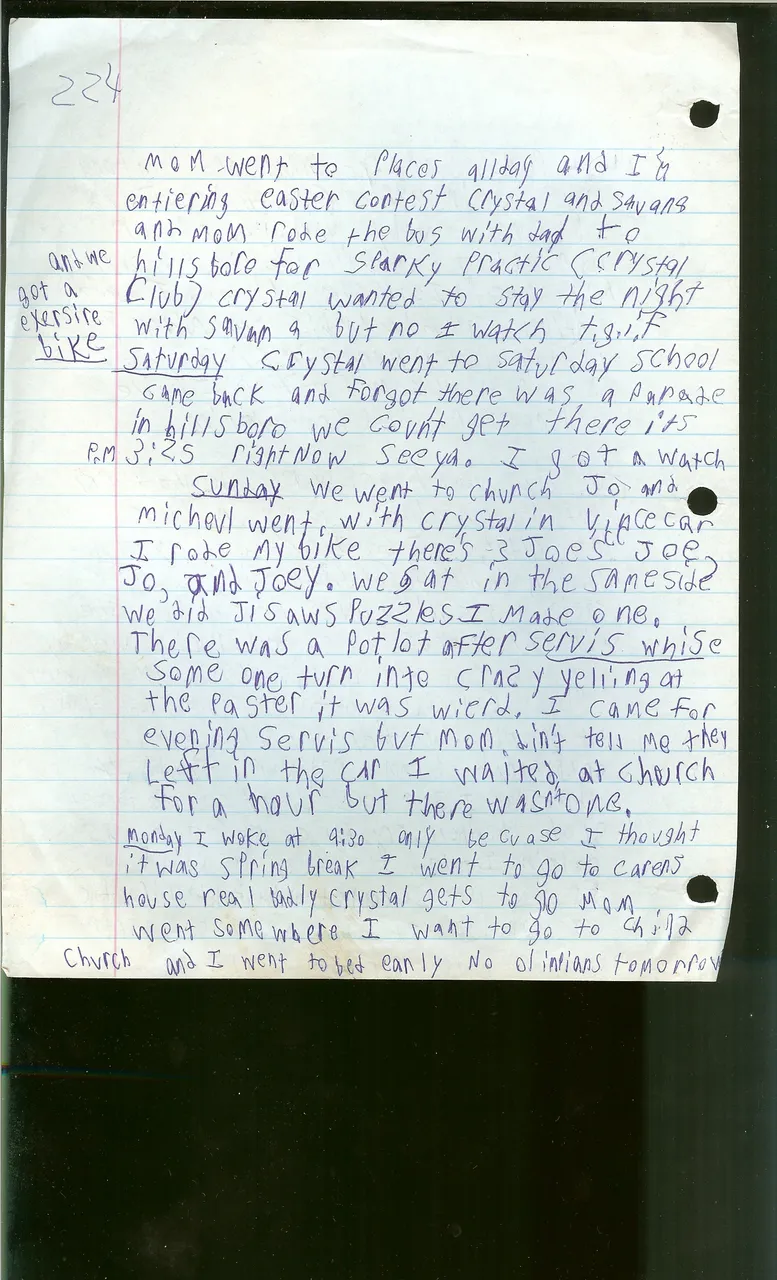 224
mom went to places allday and I'm
entiering easter contest crystal and savana
and mom rode the bus with dad to
hillsboro for sparky practic (crystal
Club) crystal wanted to stay the night
with savana but no I watch t.g.i.f
and we
got a
exersire
bike
Saturday crystal went to saturday school
came back and forgot there was a parade
in hillsboro we count get there its
P.M 3:25 right now see ya. I got a watch
Sunday we went to church Jo and
micheul went with crystal in vince car
I rode my bike there's 3 Joes Joe,
Jo, and Joey. we sat in the same side
we did Jisaws puzzles I made one.
There was a potlot after servis whise
some one turn into crazy yelling at
the paster it was wierd. I came for
evening servis but mom din't tell me they
left in the car I waited at church
for a hour but there wasnt one.
monday I woke at 9:30 only becuase I thought
it was spring break I went to go to carens
house real badly crystal gets to go mom
went some where I want to go to child
Church and I went to bed early No olinpians tomorrow